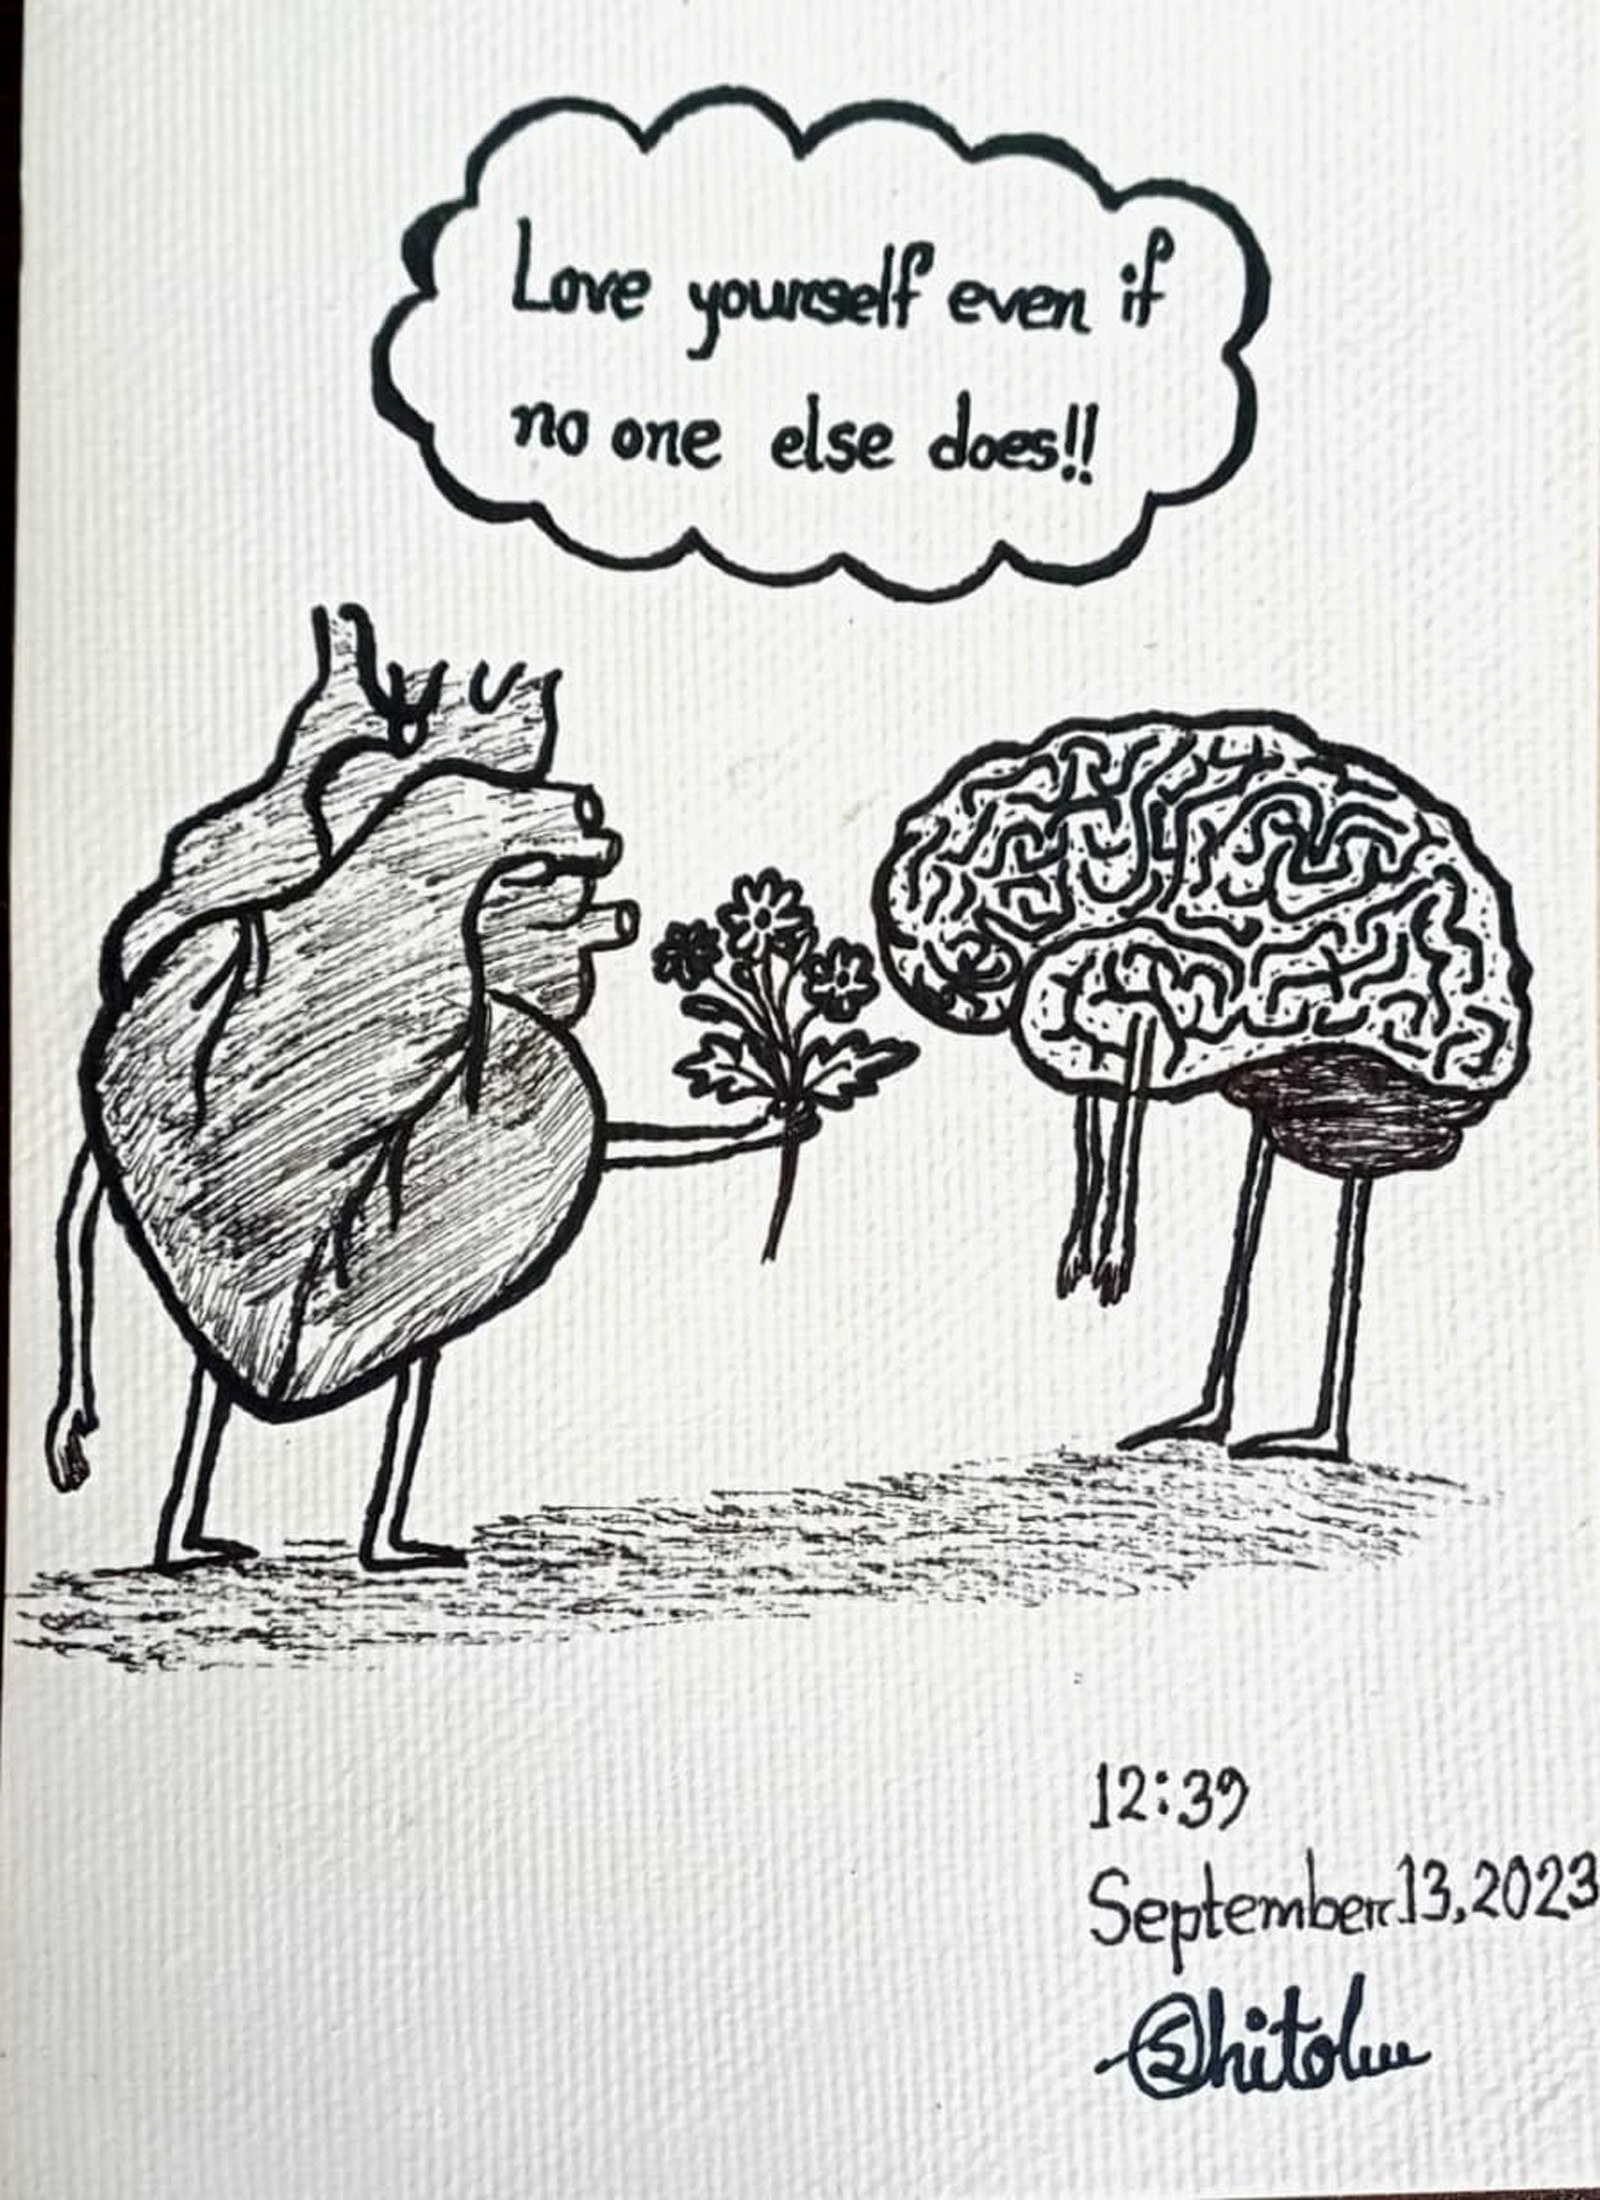 Love yourself even if
no one else does!!
12:39
September 13, 2023